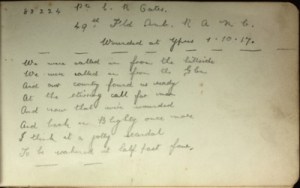 Pte C. R. Gates.
49th Fld Amb. R A M C.
Wounded at Ypres 1-10-17.
We were called in from the hillside
We were called in from the Glen
And our country found us ready
At the stirring call for men
And now that we're wounded
And back in Blighty once more
I think it a jolly scandal
To be wakened at half past four.